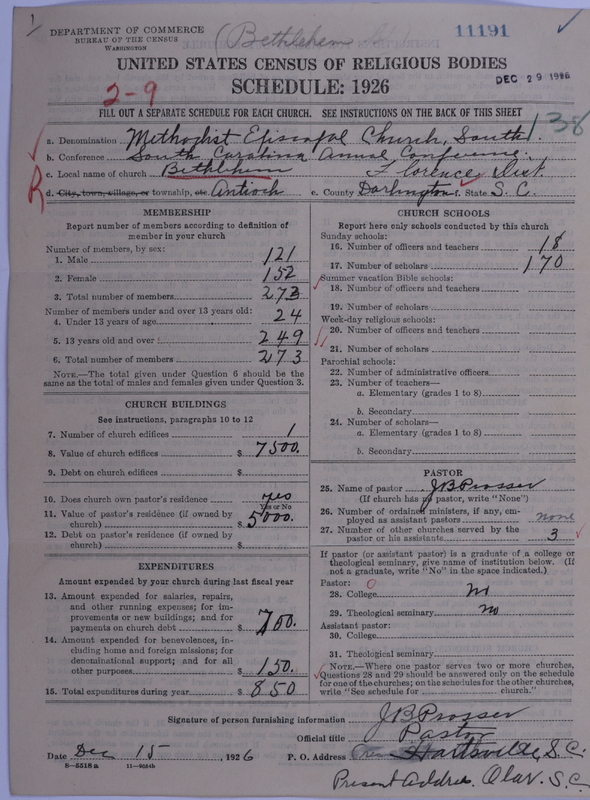 1
DEPARTMENT OF COMMERCE
BUREAU OF THE CENSUS
WASHINGTON
(Bethlehem
11191
UNITED STATES CENSUS OF RELIGIOUS BODIES
SCHEDULE: 1926
DEC 29 1926
2-9
FILL OUT A SEPARATE SCHEDULE FOR EACH CHURCH. SEE INSTRUCTIONS ON THE BACK OF THIS SHEET
38
a. Denomination Methodist Episcopal Church, South
b. Conference South Carolina Annual Conference.
c. Local name of church Bethlehem Florence Dist.
R
d. City, town, village, or township, etc. Antioch e. County Darlington f. State S.C.
MEMBERSHIP
Report number of members according to definition of
member in your church
Number of members, by sex:
1. Male 121
2. Female 152
3. Total number of members 273
Number of members under and over 13 years old:
4. Under 13 years of age 24
5. 13 years old and over : 249
6. Total number of members 273
NOTE.—The total given under Question 6 should be
same as the total of males and females given under Question 3.
CHURCH BUILDINGS
See instructions, paragraphs 10 to 12
7. Number of church edifices 1
8. Value of church edifices $ 7500.
9. Debt on church edifices $
10. Does church own pastor's residence yes
Yes or No
11. Value of pastor's residence (if owned by
church) $ 5000.
12. Debt on pastor's residence (if owned by
church) $
EXPENDITURES
Amount expended by your church during last fiscal year
13. Amount expended for salaries, repairs,
and other running expenses; for im-
provements or new buildings; and for
payments on church debt $ 700.
14. Amount expended for benevolences, in-
cluding home and foreign missions; for
denominational support; and for all
other purposes $ 150.
15. Total expenditures during year $ 850
CHURCH SCHOOLS
Report here only schools conducted by this church
Sunday schools:
16. Number of officers and teachers 18
17. Number of scholars 170
Summer vacation Bible schools:
18. Number of officers and teachers
19. Number of scholars
Week-day religious schools:
20. Number of officers and teachers
21. Number of scholars
Parochial schools:
22. Number of administrative officers
23. Number of teachers—
a. Elementary (grades 1 to 8)
b. Secondary
24. Number of scholars—
a. Elementary (grades 1 to 8)
b. Secondary
PASTOR
25. Name of pastor J B Prosser
(If church has no pastor, write "None")
26. Number of ordained ministers, if any, em-
ployed as assistant pastors none
27. Number of other churches served by the
pastor or his assistants 3
If pastor (or assistant pastor) is a graduate of a college or
theological seminary, give name of institution below. (If
not a graduate, write "No" in the space indicated.)
Pastor: O
28. College No
29. Theological seminary No
Assistant pastor:
30. College
31. Theological seminary
NOTE.—Where one pastor serves two or more churches,
Questions 28 and 29 should be answered only on the schedule
for one of the churches; on the schedules for the other churches,
write "See schedule for church."
Signature of person furnishing information J B Prosser
Official title Pastor
Date Dec 15, 1926 P. O. Address Hartsville, S.C.
8—5518a 11—9554b
Present Address Olar. S.C.